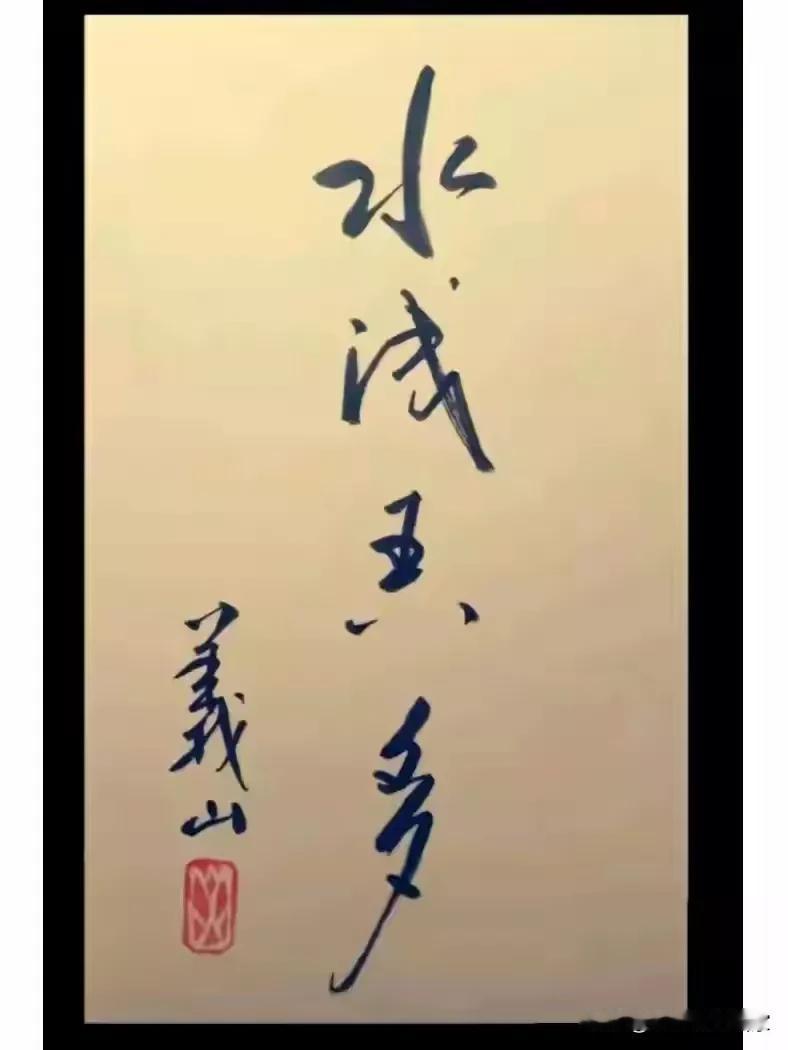 水浅王八多
義山